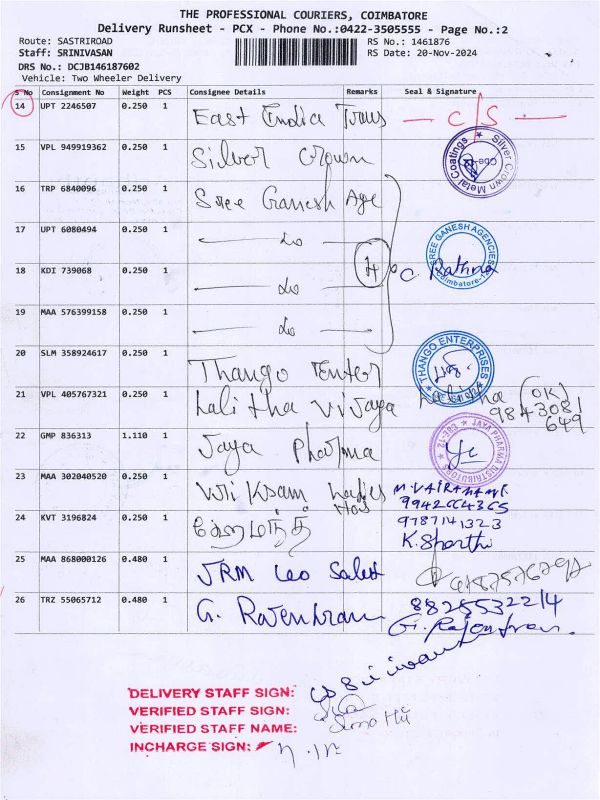 THE PROFESSIONAL COURIERS, COIMBATORE
Delivery Runsheet - PCX - Phone No.:0422-3505555 - Page No.:2
Route: SASTRIROAD RS No.: 1461876
Staff: SRINIVASAN RS Date: 20-Nov-2024
DRS No.: DCJB146187602
Vehicle: Two Wheeler Delivery
S No Consignment No Weight PCS Consignee Details Remarks Seal & Signature
14 UPT 2246507 0.250 1 East India Trans — C/S —
15 VPL 949919362 0.250 1 Silver Crown
Silver Crown Metal Coatings
16 TRP 6840096 0.250 1 Sree Ganesh Age
17 UPT 6080494 0.250 1 — do —
SREE GANESH AGENCIES
4 C. Rathna
Coimbatore-12
18 KDI 739068 0.250 1 — do —
19 MAA 576399158 0.250 1 — do —
20 SLM 358924617 0.250 1 Thango Enter
THANGO ENTERPRISES
21 VPL 405767321 0.250 1 Lalitha Vijaya Lalitha (OK)
9843081
649
22 GMP 836313 1.110 1 Jaya Pharma
JAYA PHARMA DISTRIBUTORS CBE-12
23 MAA 302040520 0.250 1 Ladies Hos
9942664365
24 KVT 3196824 0.250 1 ஹேமந்த் 9787141323
K. Sharthi
25 MAA 868000126 0.480 1 JRM Leo Sales
26 TRZ 55065712 0.480 1 G. Rajendran 8825532214
G. Rajendran.
DELIVERY STAFF SIGN: Srinivasan
VERIFIED STAFF SIGN:
VERIFIED STAFF NAME:
INCHARGE SIGN: